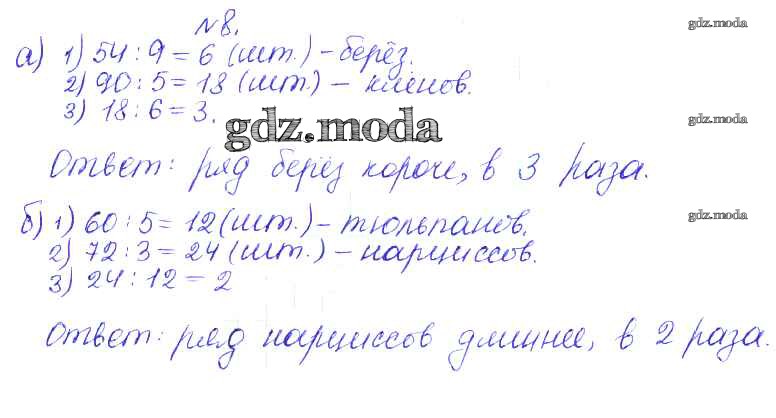 №8.
gdz.moda
а) 1) 54 : 9 = 6 (шт.) – берёз.
2) 90 : 5 = 18 (шт.) – клёнов.
3) 18 : 6 = 3.
gdz.moda
gdz.moda
Ответ: ряд берёз короче, в 3 раза.
б) 1) 60 : 5 = 12 (шт.) – тюльпанов.
gdz.moda
2) 72 : 3 = 24 (шт.) – нарциссов.
3) 24 : 12 = 2
Ответ: ряд нарциссов длиннее, в 2 раза.